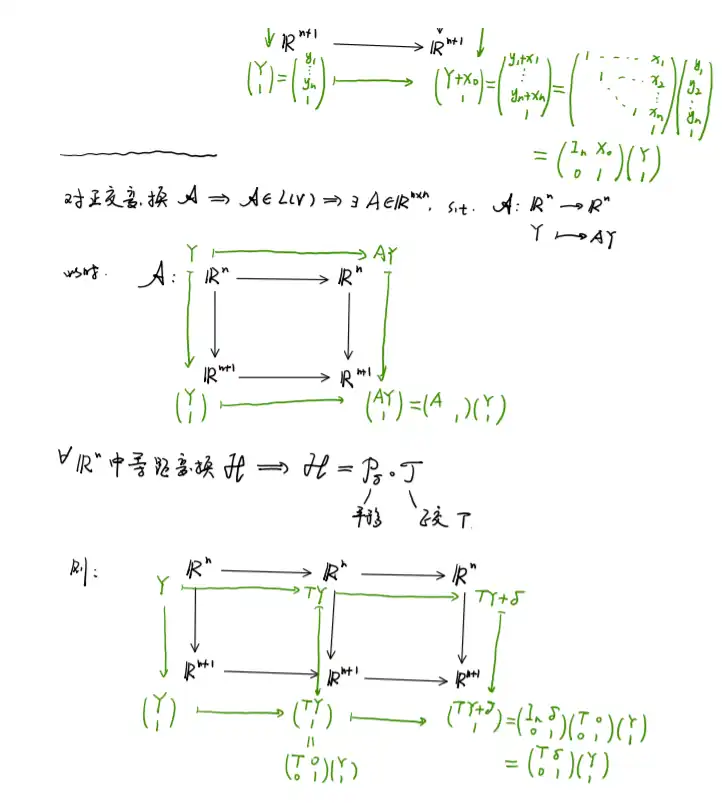 ℝⁿ⁺¹ ⟶ ℝⁿ⁺¹
(Y 1) = (y₁ ⋮ yₙ 1) ⟼ (Y+X₀ 1) = (y₁+x₁ ⋮ yₙ+xₙ 1) = (1 ---- x₁ 1 --- x₂ ⋱ ⋮ 1 xₙ 1)(y₁ y₂ ⋮ yₙ 1)
= (Iₙ X₀ 0 1)(Y 1)
对正交变换 𝒜 ⟹ 𝒜∈L(V) ⟹ ∃ A∈ℝⁿˣⁿ, s.t. 𝒜: ℝⁿ ⟶ ℝⁿ
Y ⟼ AY
Y ⟼ AY
此时. 𝒜: ℝⁿ ⟶ ℝⁿ
ℝⁿ⁺¹ ⟶ ℝⁿ⁺¹
(Y 1) ⟼ (AY 1) = (A 1)(Y 1)
∀ ℝⁿ 中等距变换 ℋ ⟹ ℋ = P_δ ∘ 𝒯
平移 正交 T
则:
ℝⁿ ⟶ ℝⁿ ⟶ ℝⁿ
Y ⟼ TY ⟼ TY+δ
ℝⁿ⁺¹ ⟶ ℝⁿ⁺¹ ⟶ ℝⁿ⁺¹
(Y 1) ⟼ (TY 1) ⟼ (TY+δ 1) = (Iₙ δ 0 1)(T 0 0 1)(Y 1)
= (T δ 0 1)(Y 1)
||
(T 0 0 1)(Y 1)